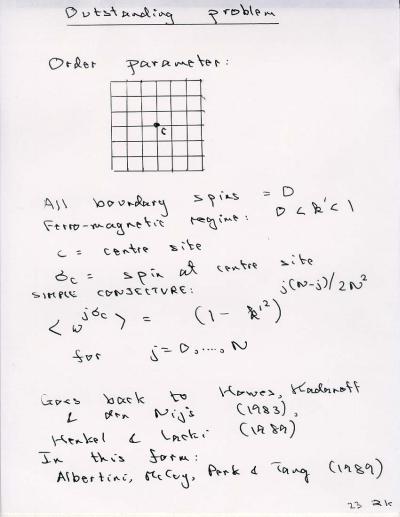 Outstanding problem
Order parameter:
c
All boundary spins = 0
Ferro-magnetic regime: 0 < k' < 1
c = centre site
σc = spin at centre site
SIMPLE CONJECTURE:
< ω^jσc > = (1 - k'^2)^j(N-j)/2N^2
for j = 0,...., N
Goes back to Howes, Kadanoff
& den Nijs (1983),
Henkel & Lacki (1989)
In this form:
Albertini, McCoy, Perk & Tang (1989)
23